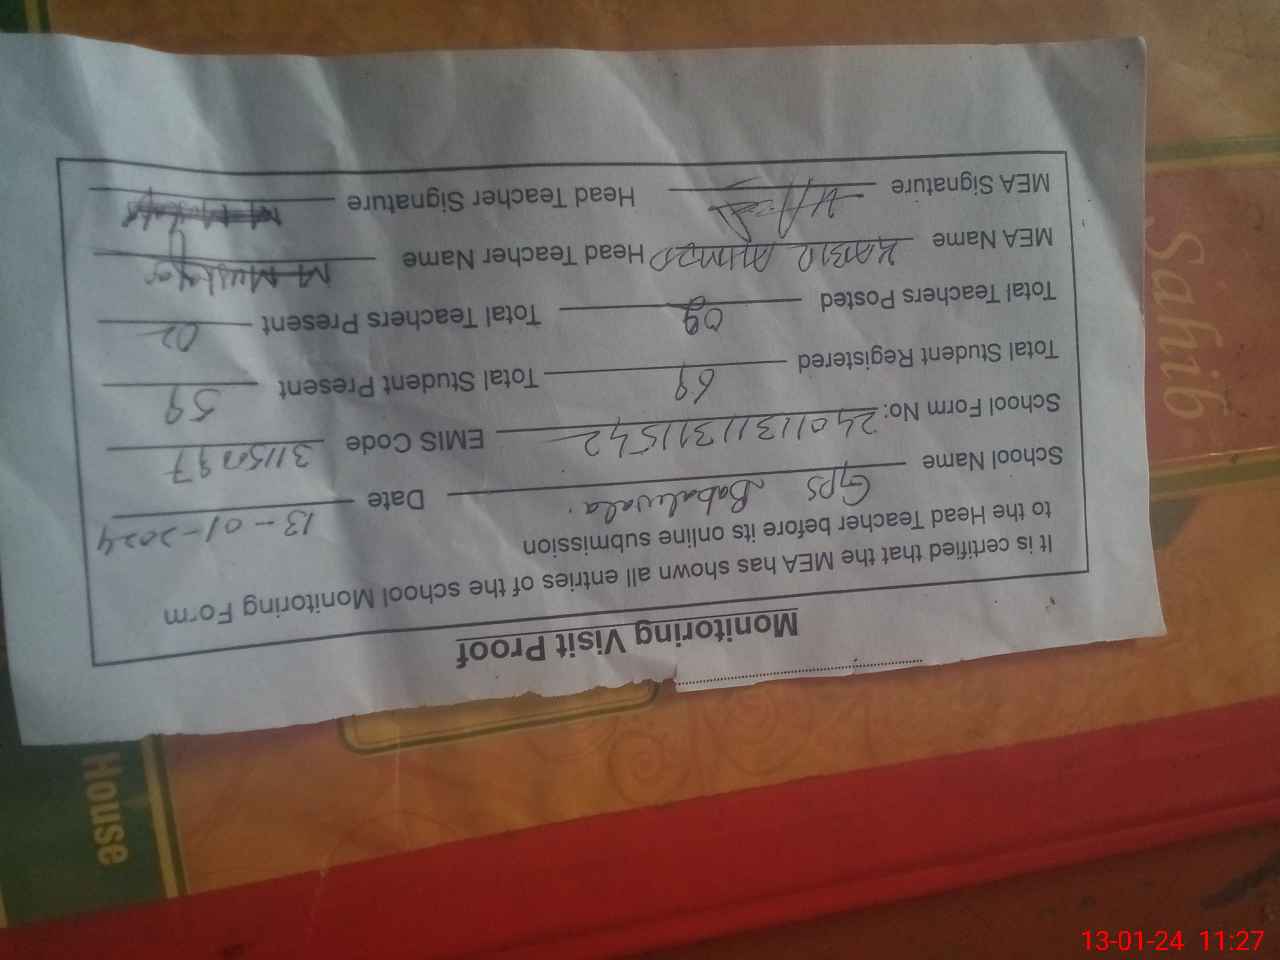 Monitoring Visit Proof
It is certified that the MEA has shown all entries of the school Monitoring Form
to the Head Teacher before its online submission
School Name GPS Babaliwala. Date 13-01-2024
School Form No: 2401131131542 EMIS Code
Total Student Registered 69 Total Student Present 59
Total Teachers Posted Total Teachers Present 02
MEA Name KABIR AHMZD Head Teacher Name M Mushtaq
MEA Signature Head Teacher Signature
Sahib
House
13-01-24 11:27